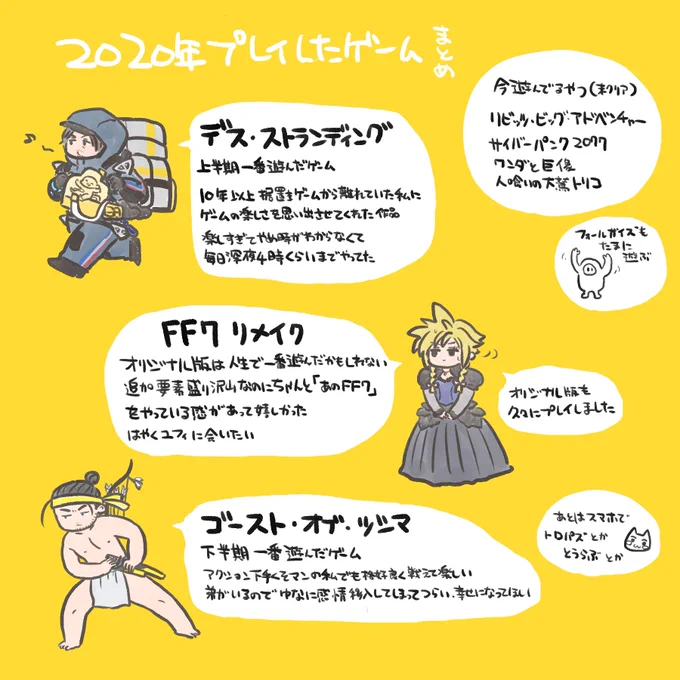 2020年プレイしたゲーム まとめ
デス・ストランディング
上半期一番遊んだゲーム
10年以上据置きゲームから離れていた私に
ゲームの楽しさを思い出させてくれた作品
楽しすぎてやめ時がわからなくて
毎日深夜4時くらいまでやってた
今遊んでるやつ(未クリア)
リビッツ・ビッグ・アドベンチャー
サイバーパンク2077
ワンダと巨像
人喰いの大鷲トリコ
フォールガイズも
たまに
遊ぶ
FF7 リメイク
オリジナル版は人生で一番遊んだかもしれない
追加要素盛り沢山なのにちゃんと「あのFF7」
をやっている感があって嬉しかった
はやくユフィに会いたい
オリジナル版も
久々にプレイしました
ゴースト・オブ・ツシマ
下半期一番遊んだゲーム
アクション下手くそマンの私でも格好良く戦えて楽しい
弟がいるのでゆなに感情移入してしまってつらい、幸せになってほしい
あとはスマホで
トロパズとか
とうらぶとか